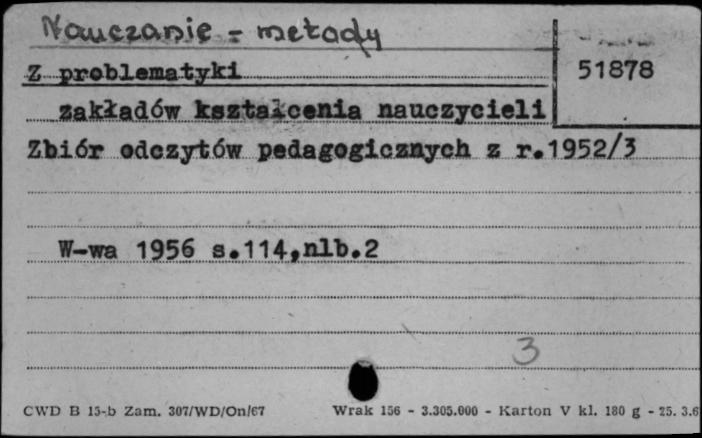 Nauczanie - metody
Z problematyki
51878
zakładów kształcenia nauczycieli
Zbiór odczytów pedagogicznych z r.1952/3
W-wa 1956 s.114,nlb.2
3
CWD B 15-b Zam. 307/WD/On/67 Wrak 156 - 3.305.000 - Karton V kl. 180 g - 25. 3.6